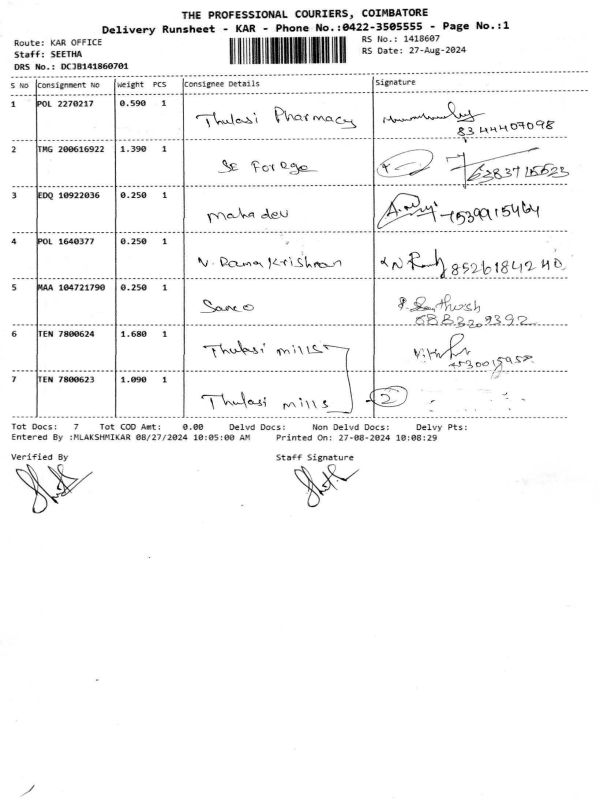 THE PROFESSIONAL COURIERS, COIMBATORE
Delivery Runsheet - KAR - Phone No.:0422-3505555 - Page No.:1
Route: KAR OFFICE
Staff: SEETHA
DRS No.: DCJB141860701
RS No.: 1418607
RS Date: 27-Aug-2024
S No Consignment No Weight PCS Consignee Details Signature
1 POL 2270217 0.590 1 Thulasi Pharmacy
8344407098
2 TMG 200616922 1.390 1 SE Forge
3 EDQ 10922036 0.250 1 mahadev
4 POL 1640377 0.250 1 N. Ramakrishnan 8526184240
5 MAA 104721790 0.250 1 Sanco
6 TEN 7800624 1.680 1 Thulasi mills
7 TEN 7800623 1.090 1 Thulasi mills 2
Tot Docs: 7 Tot COD Amt: 0.00 Delvd Docs: Non Delvd Docs: Delvy Pts:
Entered By :MLAKSHMIKAR 08/27/2024 10:05:00 AM Printed On: 27-08-2024 10:08:29
Verified By Staff Signature